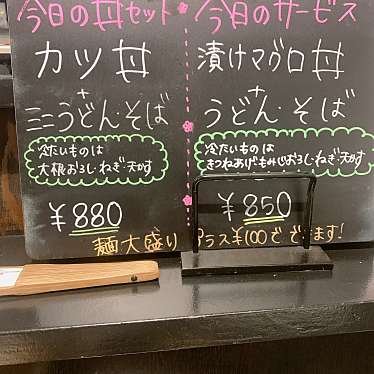 今日の丼セット
カツ丼
+
ミニうどん・そば
冷たいものは
大根おろし・ねぎ・天かす
¥880
今日のサービス
漬けマグロ丼
+
うどん・そば
冷たいものは
きつねあげ・もみじおろし・ねぎ・天かす
¥850
麺大盛り プラス¥100で できます!